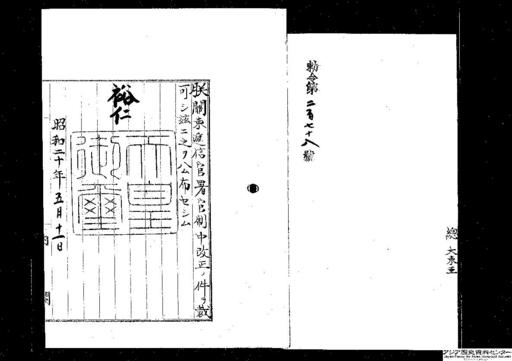 勅令第二百七十八號
総
大東亜
朕關東逓信官署官制中改正ノ件ヲ裁
可シ玆ニ之ヲ公布セシム
裕仁
天皇御璽
昭和二十年五月十一日
内閣
アジア歴史資料センター